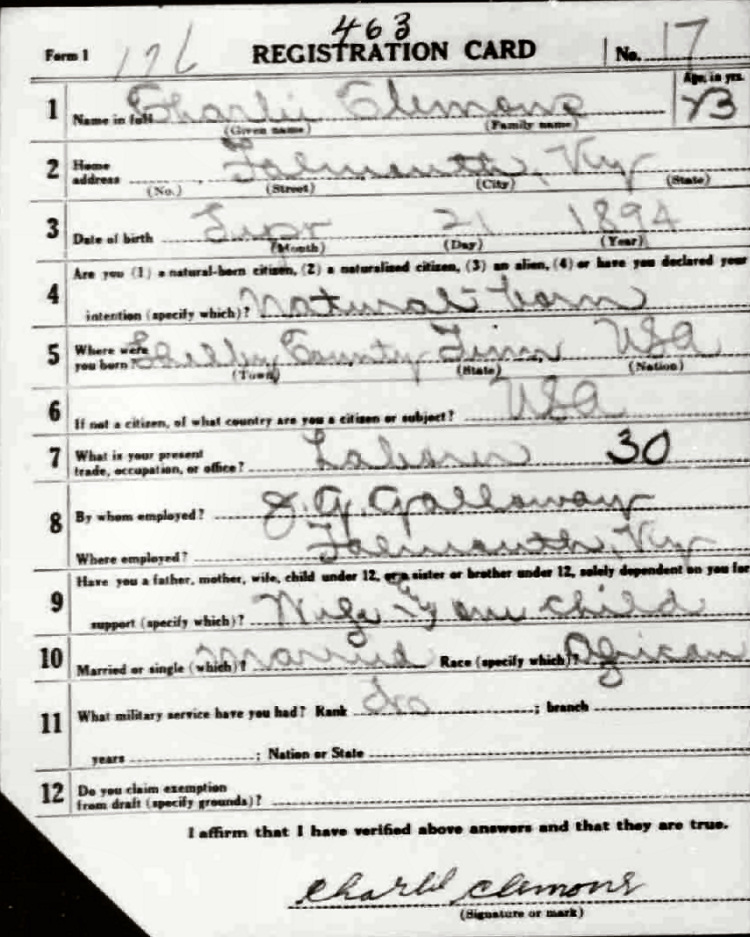 463
Form 1 176 REGISTRATION CARD No. 17
1 Name in full Charlie Clemons Age, in yrs. 23
(Given name) (Family name)
2 Home address Falmouth, Ky
(No.) (Street) (City) (State)
3 Date of birth Sept 21 1894
(Month) (Day) (Year)
4 Are you (1) a natural-born citizen, (2) a naturalized citizen, (3) an alien, (4) or have you declared your
intention (specify which)? Natural born
5 Where were you born? Shelby County Tinn USA
(Town) (State) (Nation)
6 If not a citizen, of what country are you a citizen or subject? USA
7 What is your present trade, occupation, or office? Laborer 30
8 By whom employed? J. G. Galloway
Where employed? Falmouth, Ky
9 Have you a father, mother, wife, child under 12, or a sister or brother under 12, solely dependent on you for
support (specify which)? Wife & one child
10 Married or single (which)? Married Race (specify which)? African
11 What military service have you had? Rank no ; branch
years ; Nation or State
12 Do you claim exemption from draft (specify grounds)?
I affirm that I have verified above answers and that they are true.
Charlie Clemons
(Signature or mark)